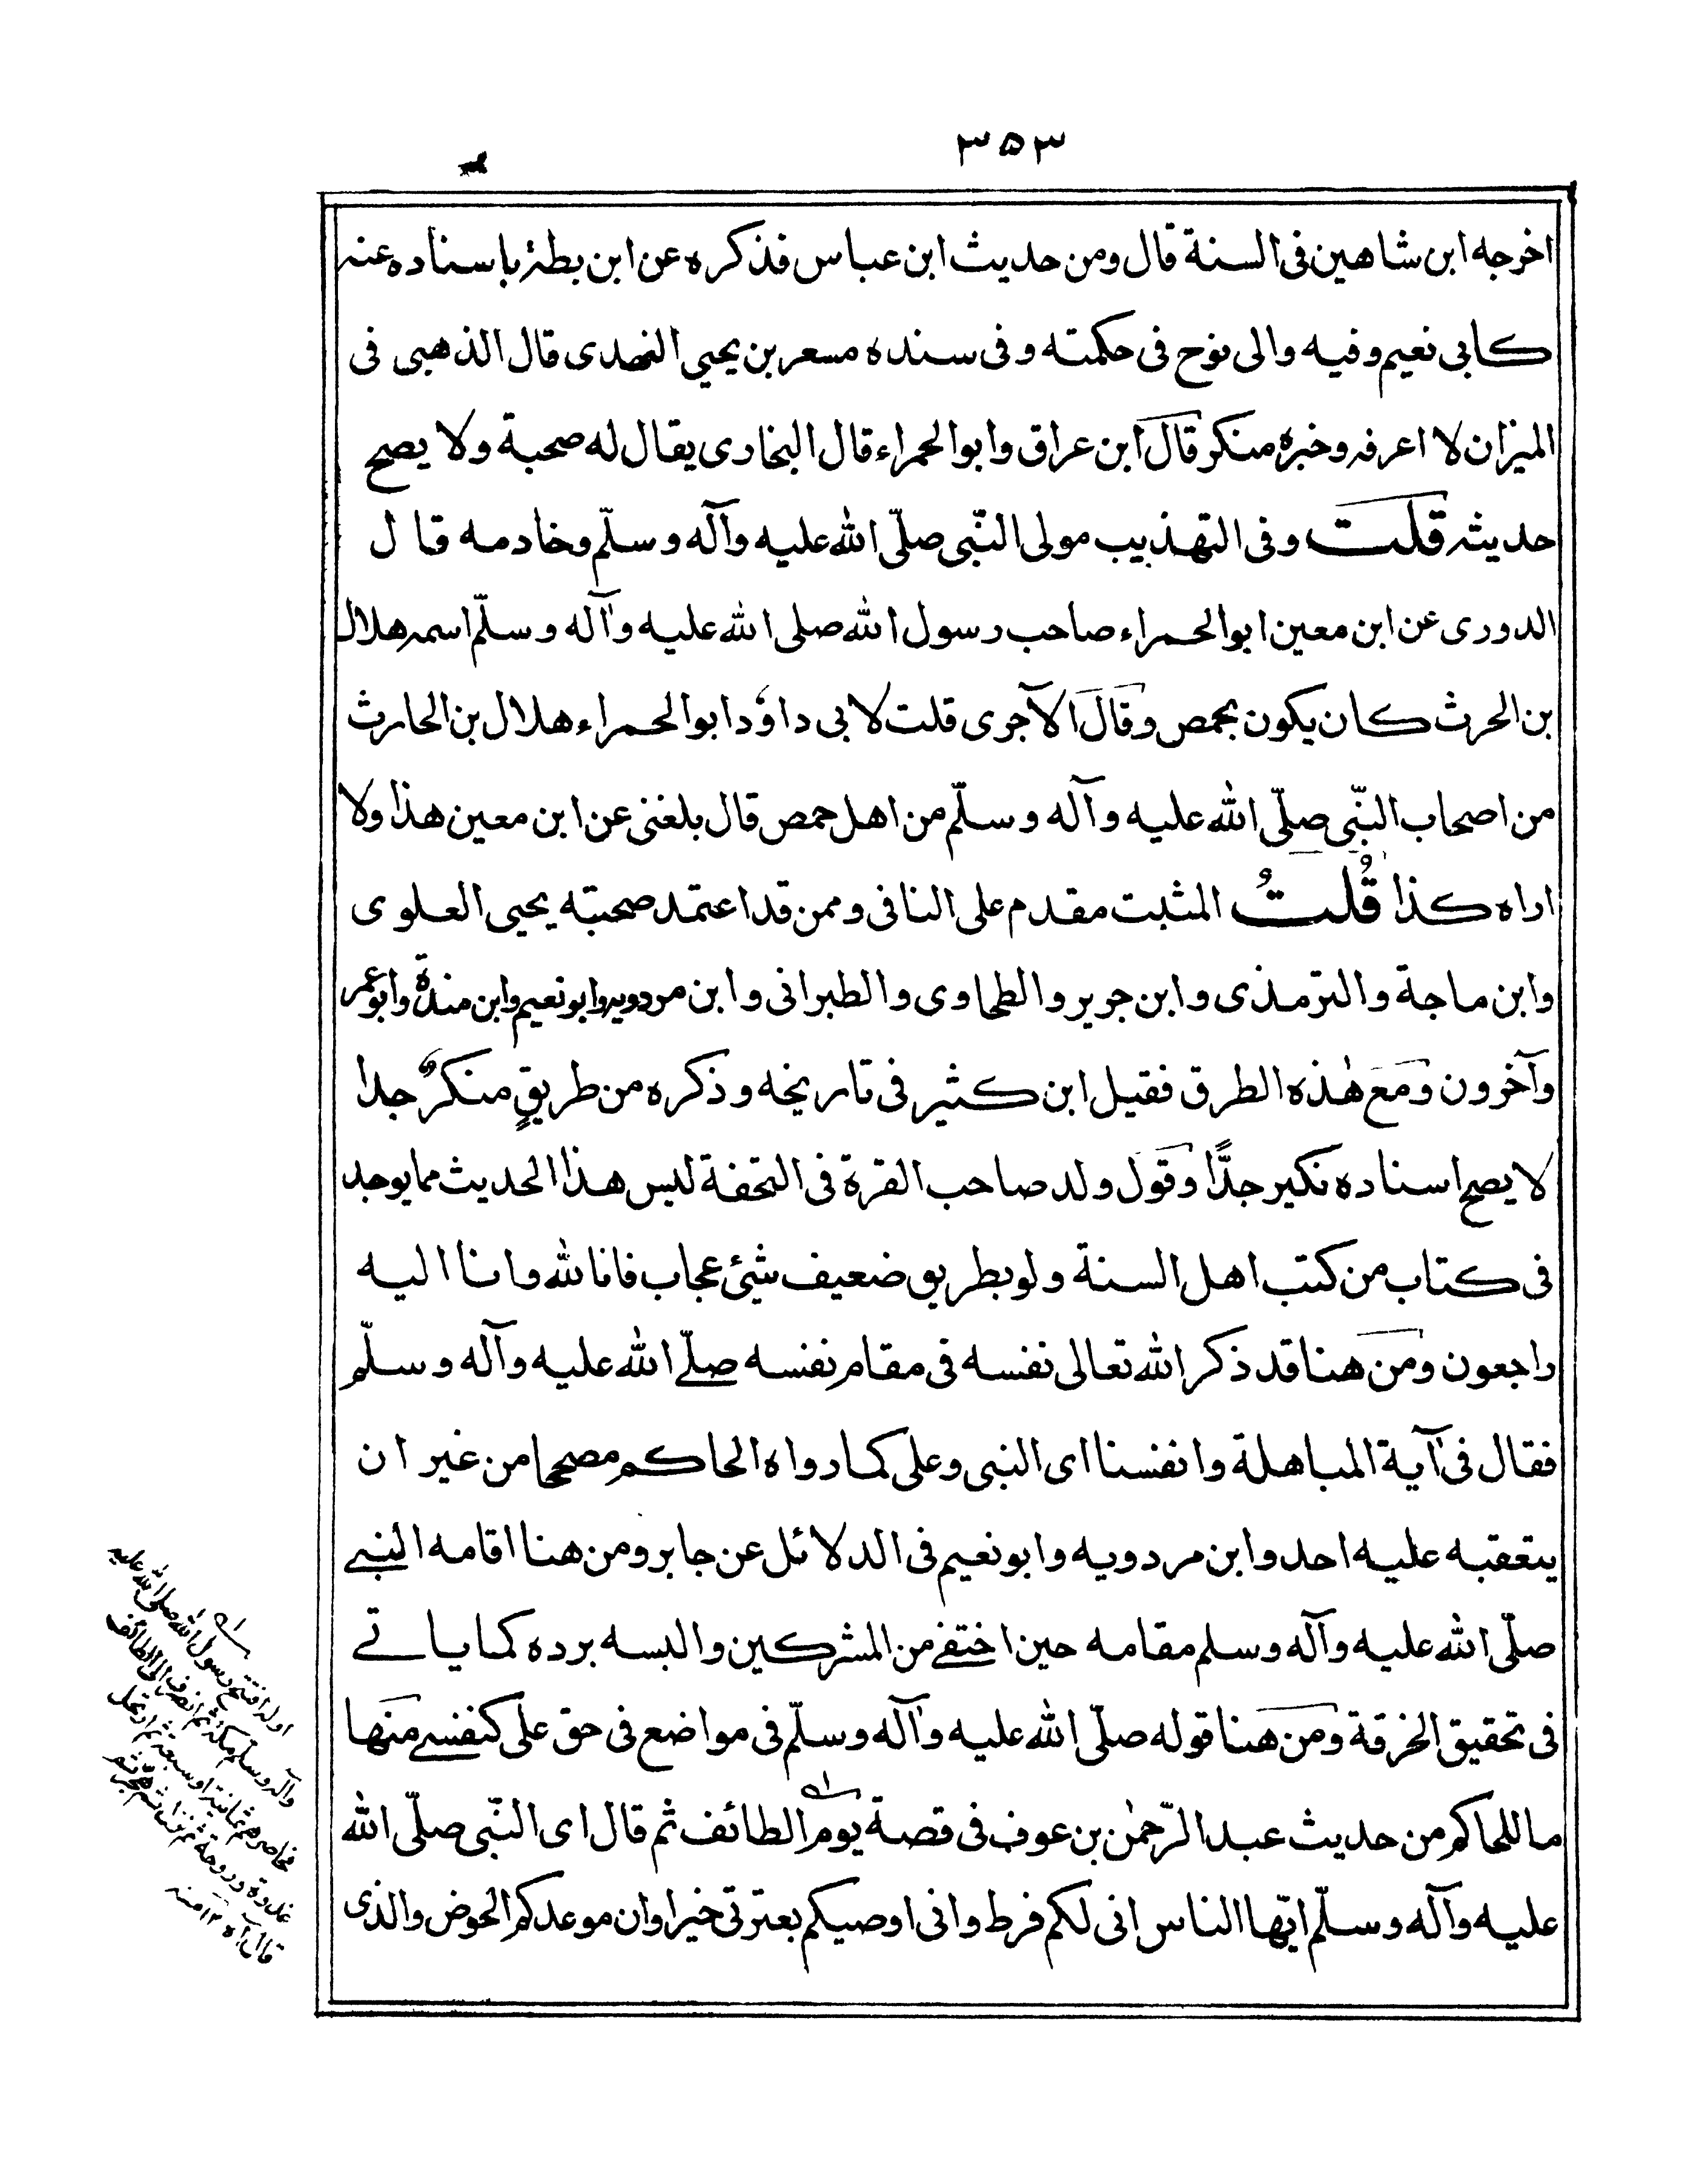 ۳۵۳
اخرجه ابن شاهين فى السنة قال ومن حديث ابن عباس فذكره عن ابن بطة باسناده عنه
كابى نعيم وفيه والى نوح فى حكمته وفى سنده مسعر بن يحيي النهدى قال الذهبى فى
الميزان لا اعرفه وخبره منكر قال ابن عراق وابو الحمراء قال البخارى يقال له صحبة ولا يصح
حديثه قلت وفى التهذيب مولى النّبى صلّى الله عليه وآله وسلّم وخادمه قال
الدورى عن ابن معين ابو الحمراء صاحب رسول الله صلى الله عليه وآله وسلّم اسمه هلال
بن الحرث كان يكون بحمص وقال الآجرى قلت لابى داؤد ابو الحمراء هلال بن الحارث
من اصحاب النّبى صلّى الله عليه وآله وسلّم من اهل حمص قال بلغنى عن ابن معين هذا ولا
اراه كذا قُلتُ المثبت مقدم على النافى وممن قد اعتمد صحبته يحيى العلوى
وابن ماجة والترمذى وابن جرير والطحاوى والطبرانى وابن مردويه وابو نعيم وابن مندة وابو عمر
وآخرون ومع هذه الطرق فقيل ابن كثير فى تاريخه وذكره من طريقٍ منكرٌ جدا
لا يصح اسناده نكير جدًّا وقول ولد صاحب القرة فى التحفة ليس هذا الحديث مما يوجد
فى كتاب من كتب اهل السنة ولو بطريق ضعيف شيئ عجاب فانا لله وانا اليه
راجعون ومن هنا قد ذكر الله تعالى نفسه فى مقام نفسه صلّے الله عليه وآله وسلّم
فقال فى آية المباهلة وانفسنا اى النبى وعلى كما رواه الحاكم مصححا من غير ان
يتعقبه عليه احد وابن مردويه وابو نعيم فى الدلائل عن جابر ومن هنا اقامه النبے
صلّى الله عليه وآله وسلم مقامه حين اختفے من المشركين والبسه برده كما ياتے
فى تحقيق الخرقة ومن هنا قوله صلّى الله عليه وآله وسلّم فى مواضع فى حق على كنفسے منها
ما للحاكم من حديث عبد الرّحمٰن بن عوف فى قصة يوم الطائف ثم قال اى النّبى صلّى الله
عليه وآله وسلّم ايّها الناس انى لكم فرط وانى اوصيكم بعترتى خيرا وان موعدكم الحوض والذى
اوله افتتح رسول الله صلى الله عليه
وآله وسلم مكة ثم انصرف الى الطائف
فحاصرهم ثمانية او سبعة ثم اوغل
غدوة وروحة ثم نزل ثم هجر ثم
قال آه ۱۲ منه